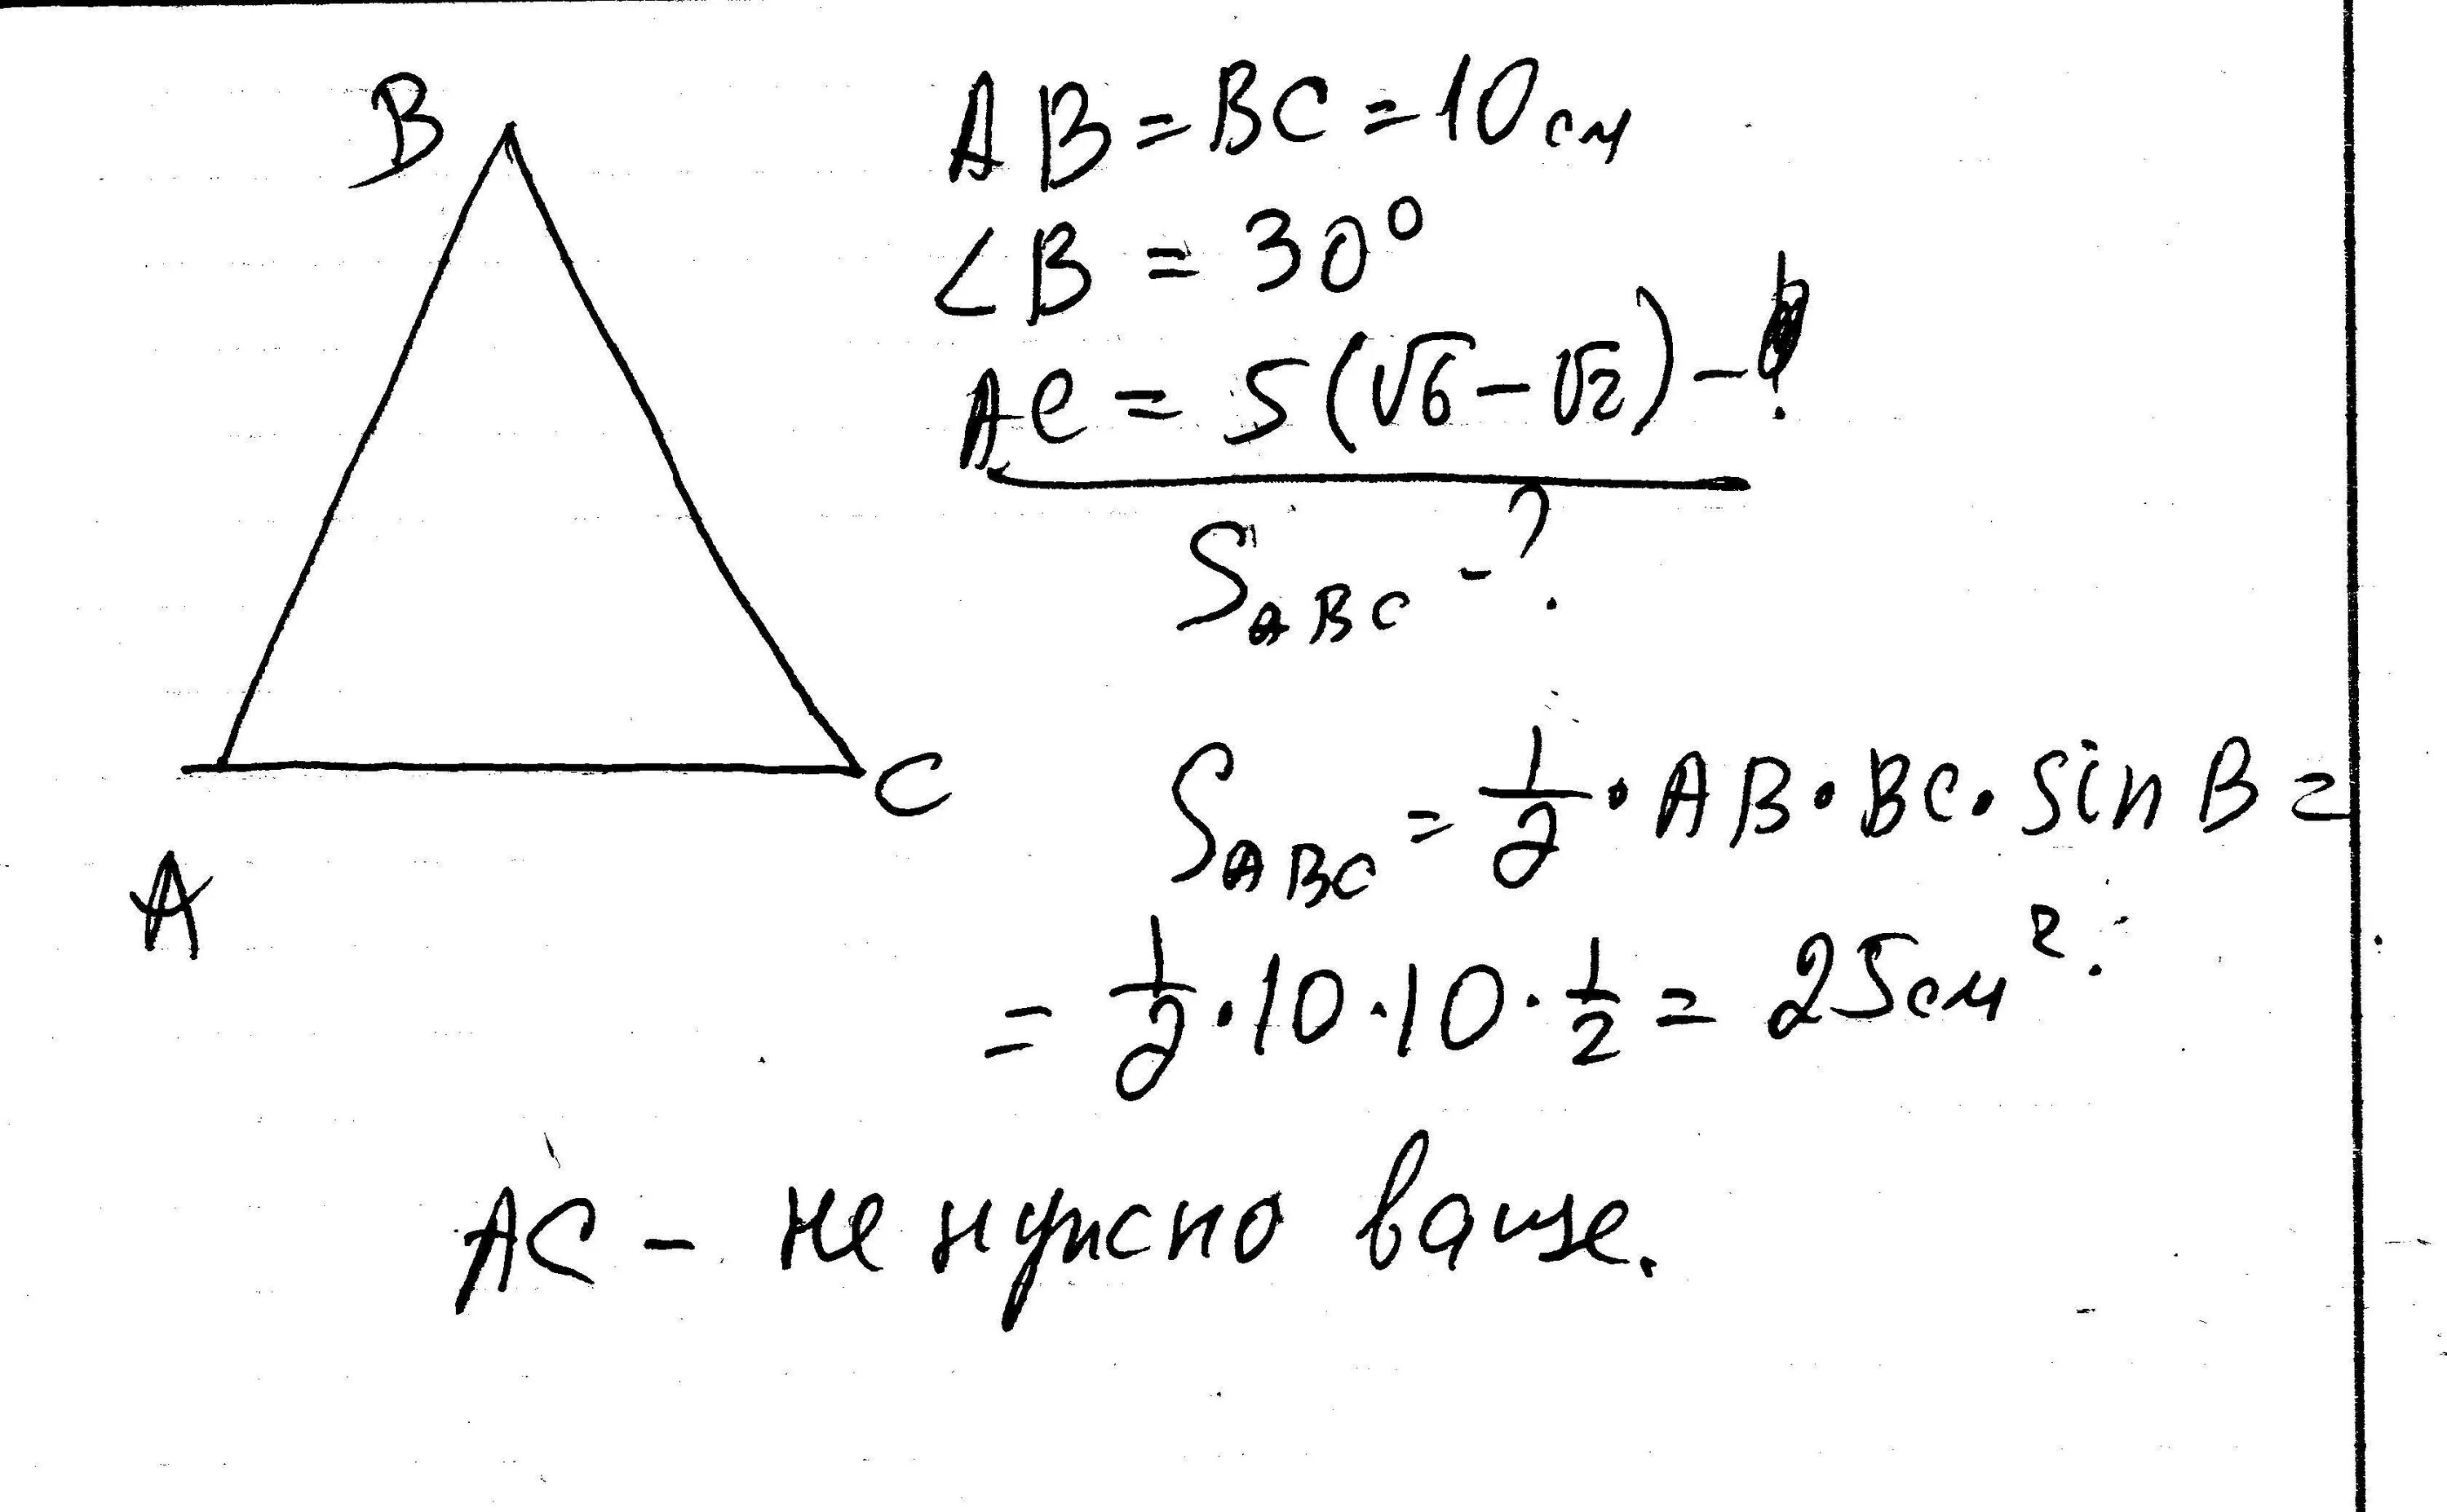 B
AB = BC = 10 см
∠B = 30°
AC = 5(√6 - √2) - !
S_ABC - ?
C
A
S_ABC = 1/2 · AB · BC · sin B =
= 1/2 · 10 · 10 · 1/2 = 25 см².
AC - не нужно ваше.